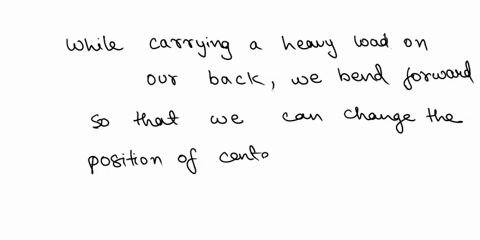 While carrying a heavy load on
our back, we bend forward
so that we can change the
position of cento